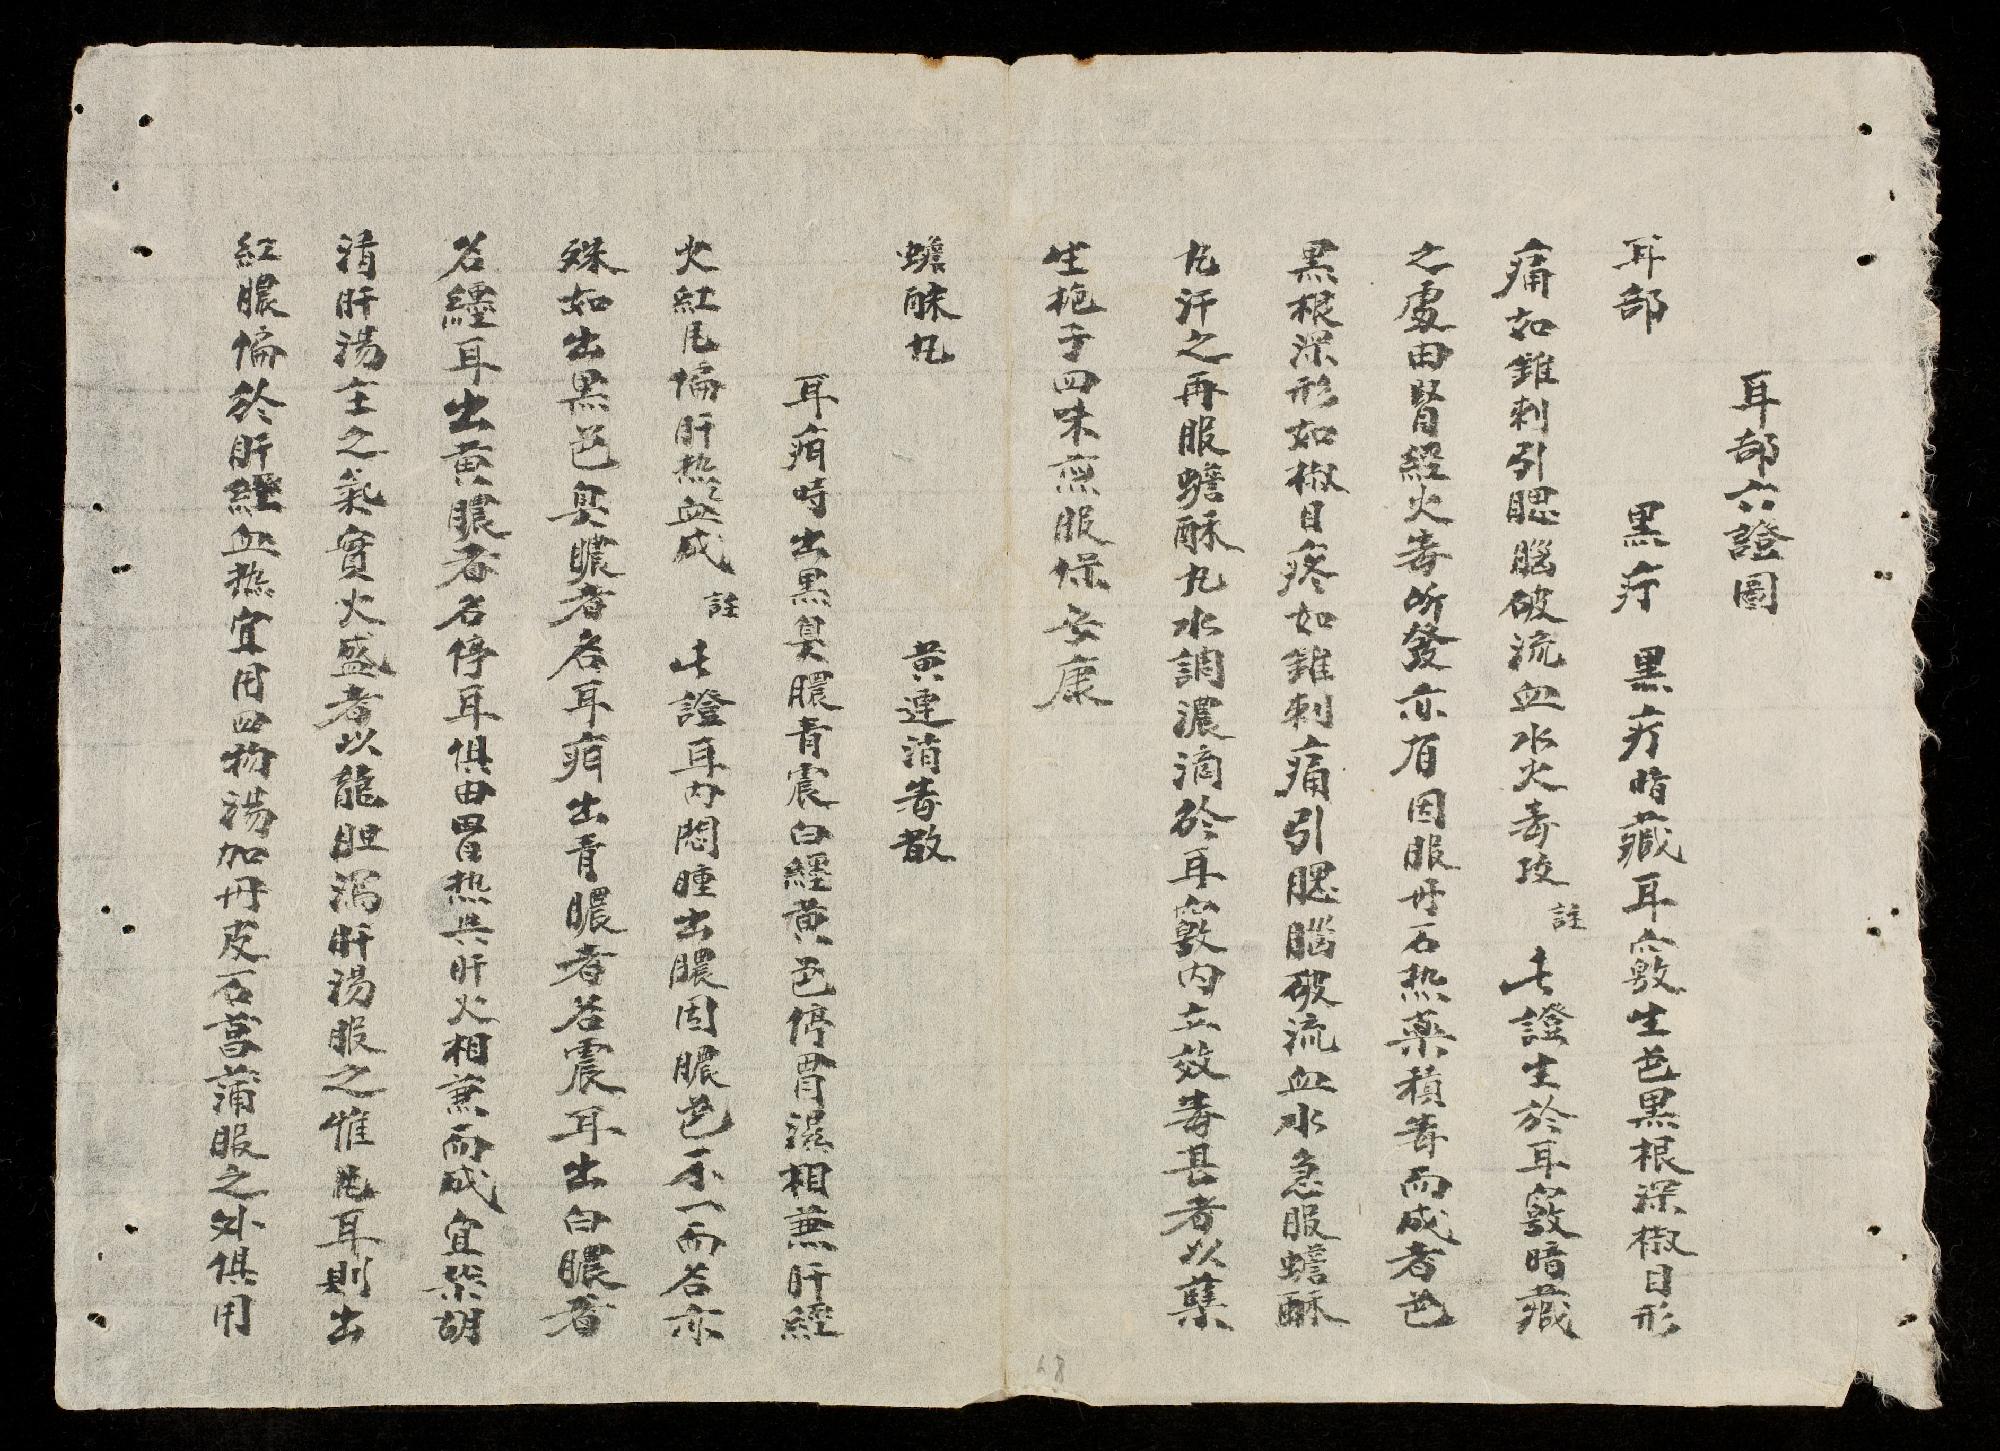 耳部六證圖
耳部 黑疔 黑疔暗藏耳竅生色黑根深椒目形
痛如錐刺引腮腦破流血水火毒攻 註 此證生於耳竅暗藏
之處由腎經火毒所發亦有因服丹石热藥積毒而成者色
黑根深形如椒目疼如錐刺痛引腮腦破流血水急服蟾酥
丸汗之再服蟾酥丸水調濃滴於耳竅内立效毒甚者以蘖
生栀子四味煎服保安康
蟾酥丸 黃連消毒散
耳疳時出黑臭膿青震白經黃色停胃湿相兼肝經
火紅风偏肝热血成 註 此證耳内悶腫出膿因膿色不一而名亦
殊如出黑色臭膿者名耳疳出青膿者名震耳出白膿者
名經耳出黃膿者名停耳俱由胃热共肝火相兼而成宜柴胡
清肝湯主之氣實火盛者以龍胆瀉肝湯服之惟风耳則出
紅膿偏於肝經血热宜用四物湯加丹皮石菖蒲服之外俱用